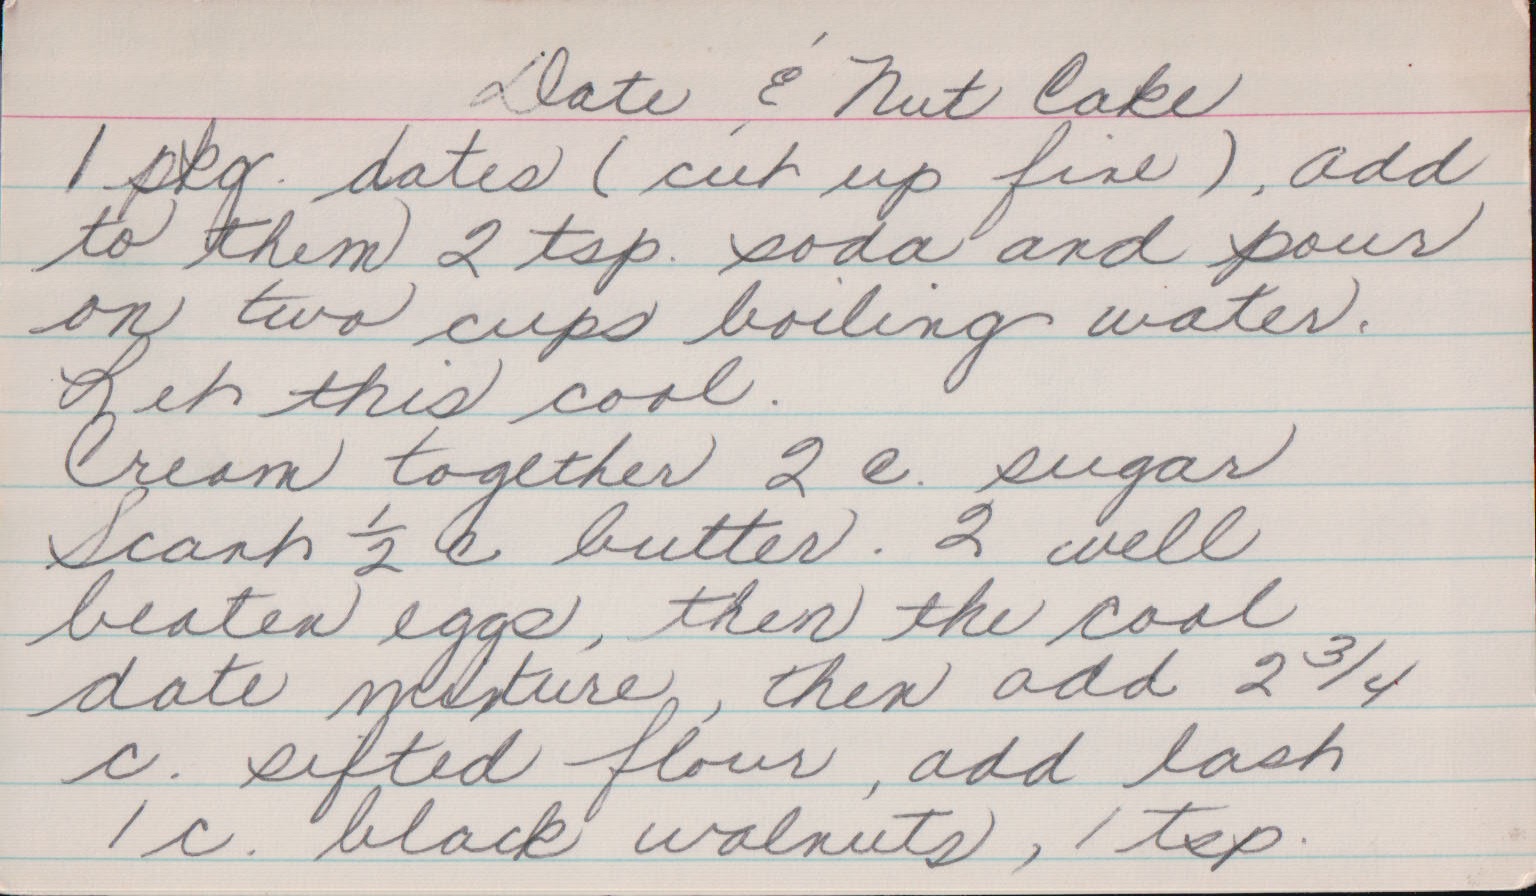 Date & Nut Cake
1 pkg. dates (cut up fine), add
to them 2 tsp. soda and pour
on two cups boiling water.
Let this cool.
Cream together 2 c. sugar
Scant ½ c butter. 2 well
beaten eggs, then the cool
date mixture, then add 2 3/4
c. sifted flour, add last
1 c. black walnuts, 1 tsp.